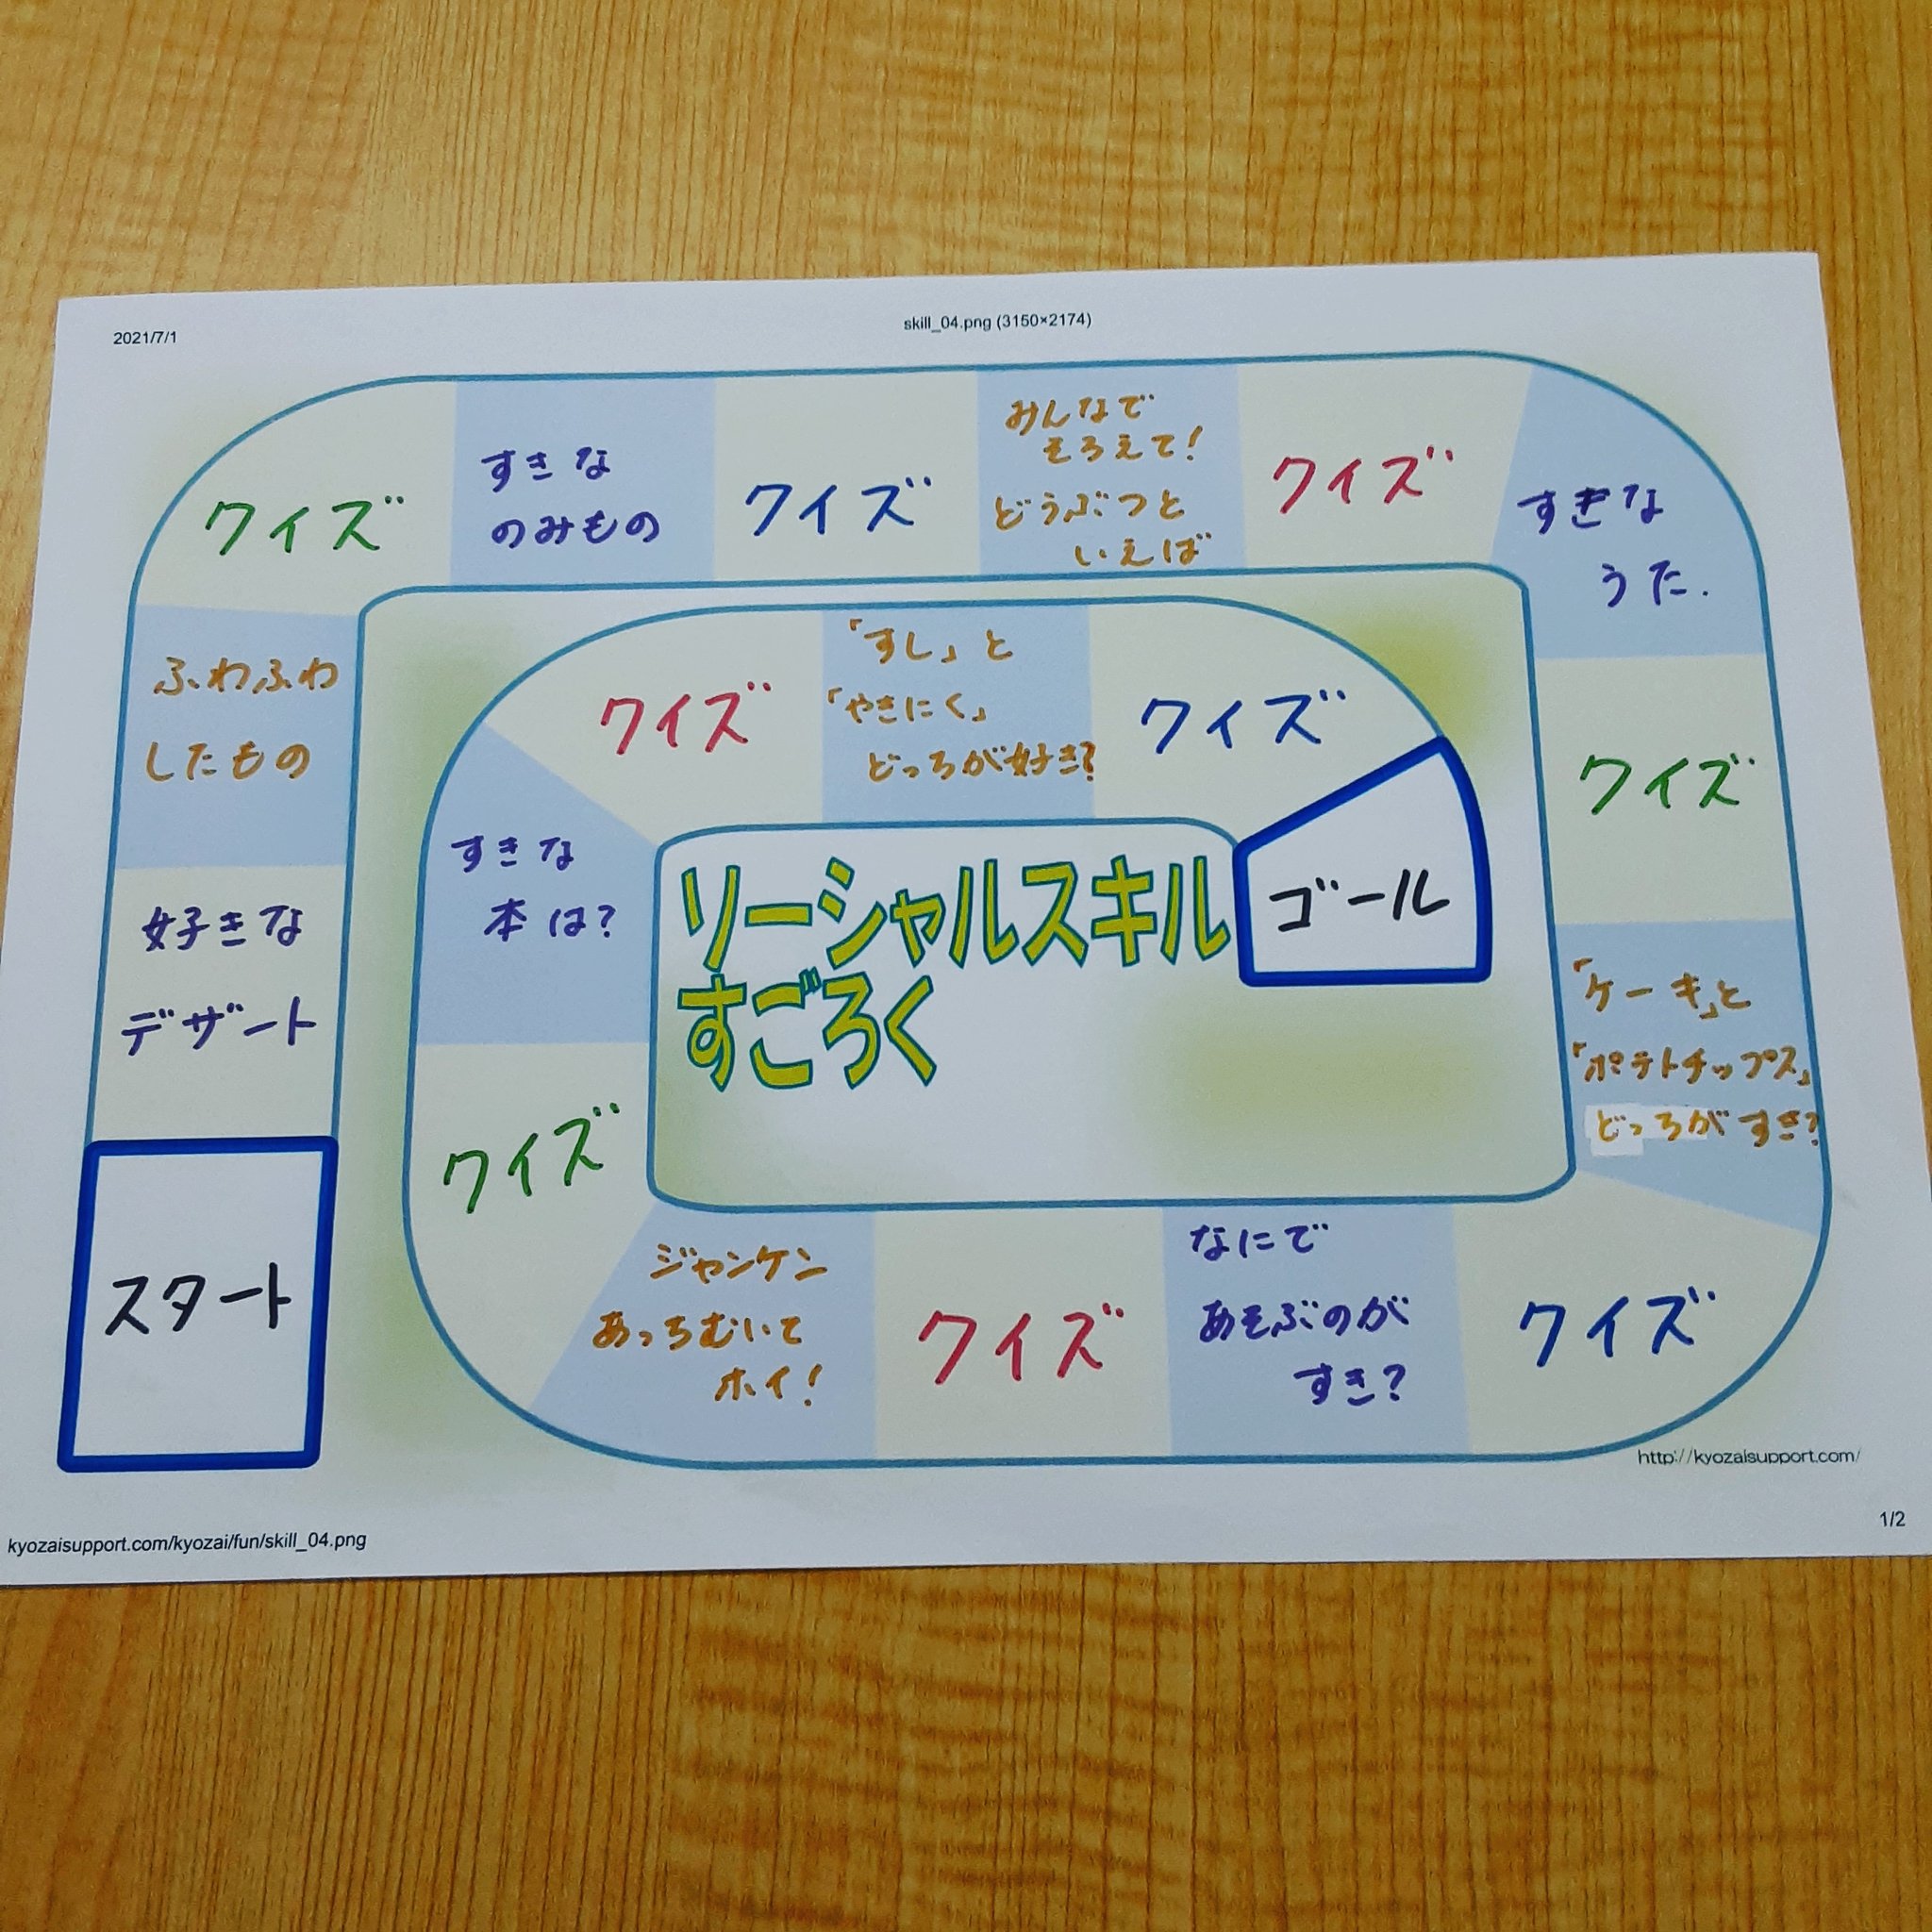 2021/7/1
skill_04.png (3150×2174)
スタート
好きな
デザート
ふわふわ
したもの
クイズ
すきな
のみもの
クイズ
みんなで
そろえて!
どうぶつと
いえば
クイズ
すきな
うた.
クイズ
「ケーキ」と
「ポテトチップス」
どっちがすき?
クイズ
なにで
あそぶのが
すき?
クイズ
ジャンケン
あっちむいて
ホイ!
クイズ
すきな
本は?
クイズ
「すし」と
「やきにく」
どっちが好き?
クイズ
ゴール
ソーシャルスキル
すごろく
http://kyozaisupport.com/
kyozaisupport.com/kyozai/fun/skill_04.png
1/2